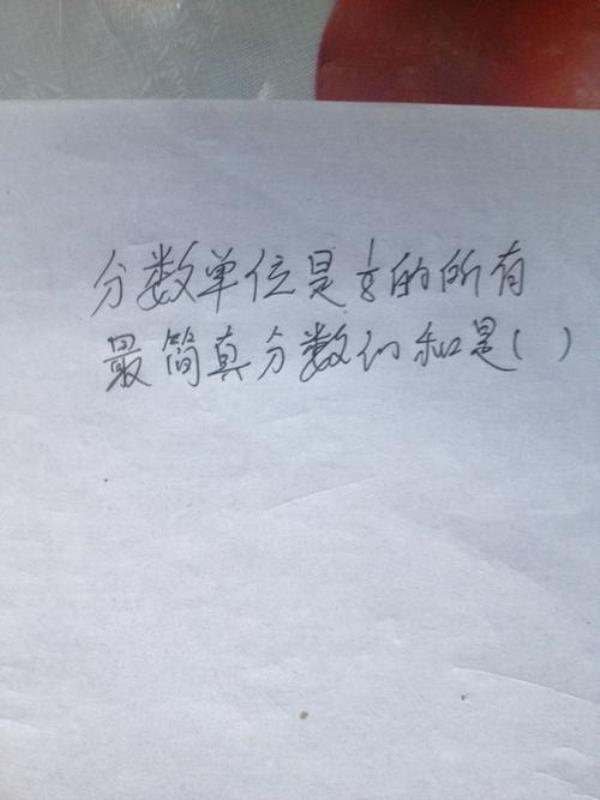 分数单位是1/8的所有
最简真分数的和是( )